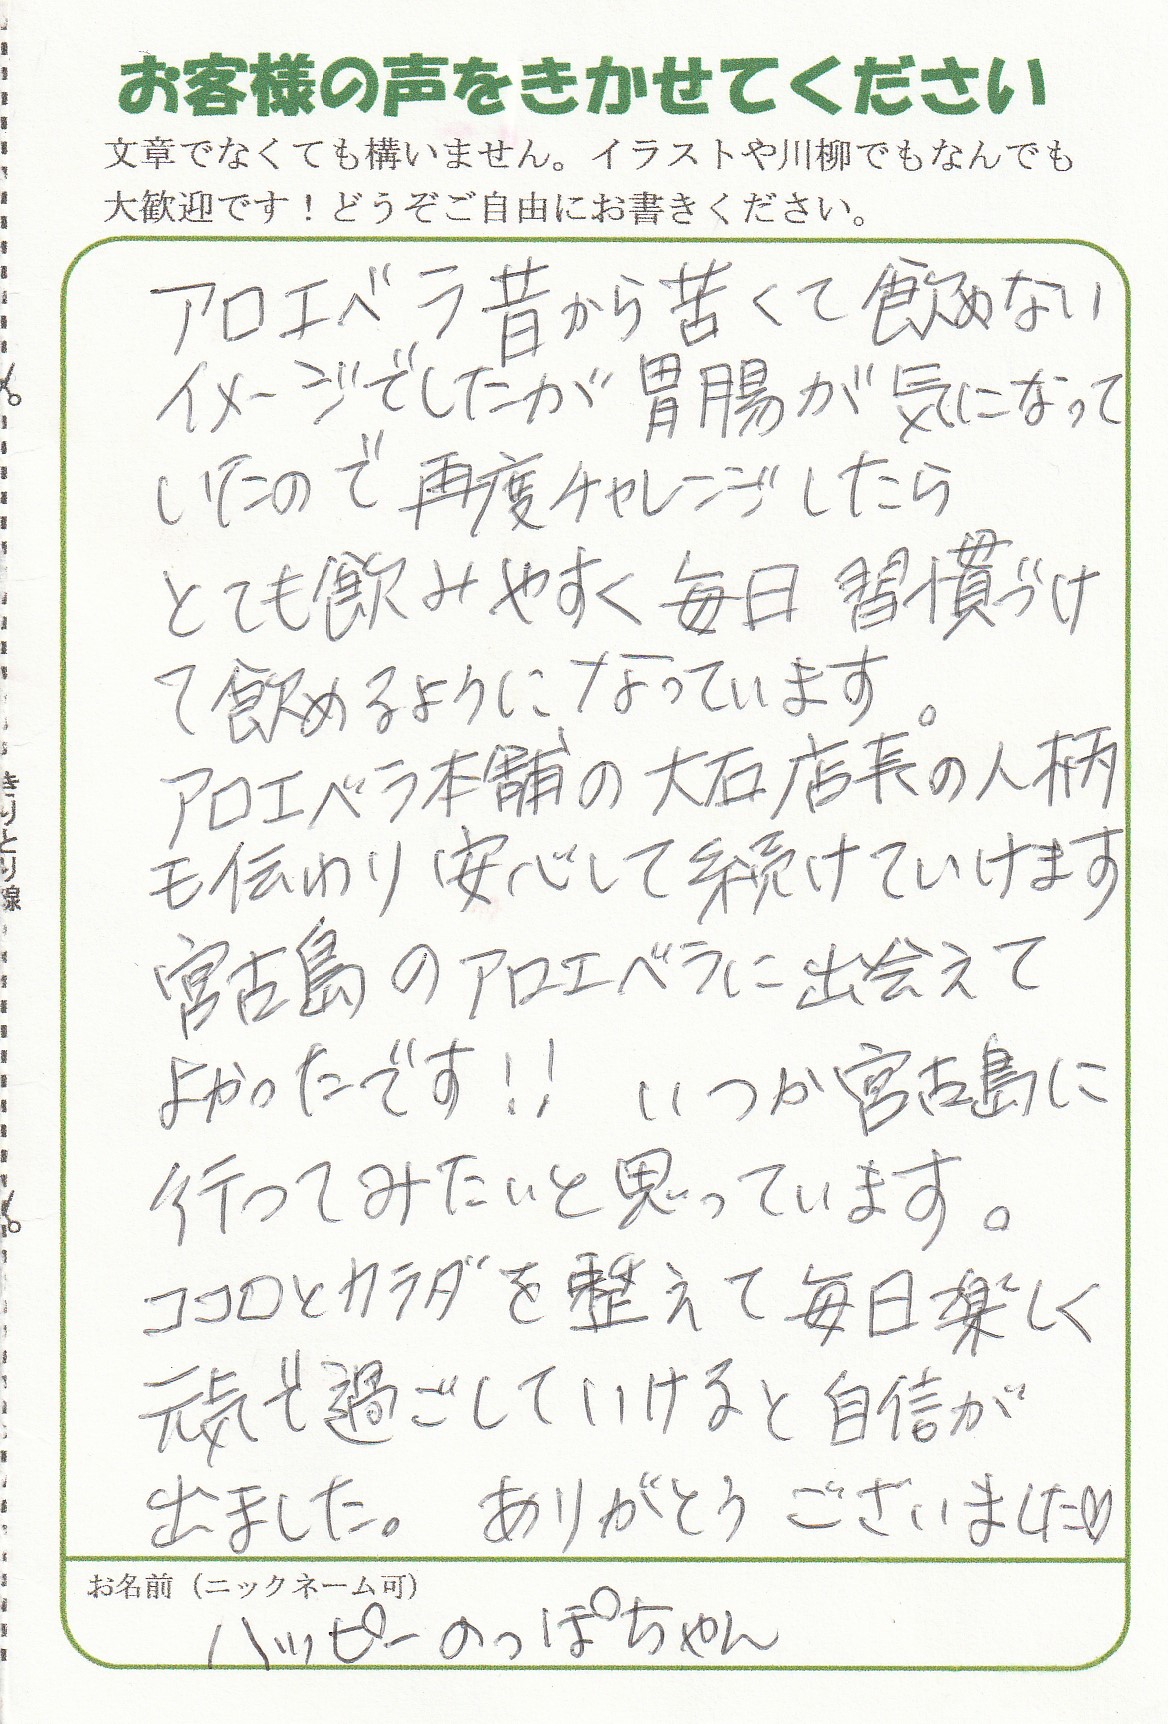 お客様の声をきかせてください
文章でなくても構いません。イラストや川柳でもなんでも
大歓迎です！どうぞご自由にお書きください。
アロエベラ昔から苦くて飲めない
イメージでしたが胃腸が気になって
いたので再度チャレンジしたら
とても飲みやすく毎日習慣づけ
て飲めるようになっています。
アロエベラ本舗の大石店長の人柄
も伝わり安心して続けていけます
宮古島のアロエベラに出会えて
よかったです!! いつか宮古島に
行ってみたいと思っています。
ココロとカラダを整えて毎日楽しく
元気で過ごしていけると自信が
出ました。 ありがとうございました♡
お名前（ニックネーム可）
ハッピーのっぽちゃん
きりとり線